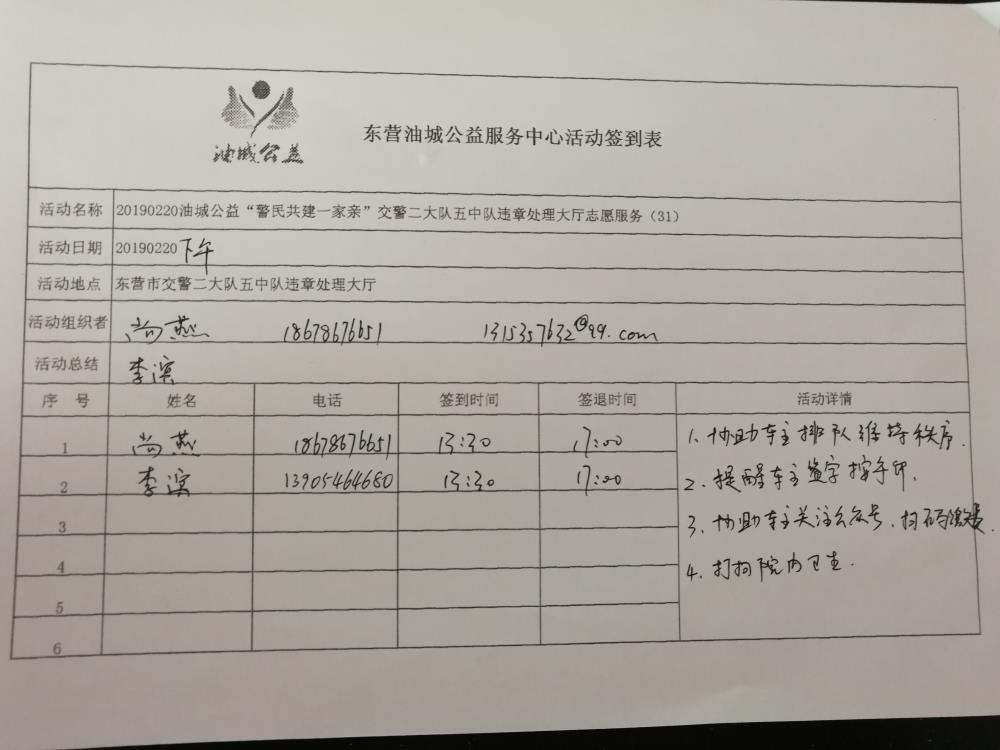 油城公益
东营油城公益服务中心活动签到表
活动名称 20190220油城公益“警民共建一家亲”交警二大队五中队违章处理大厅志愿服务（31）
活动日期 20190220下午
活动地点 东营市交警二大队五中队违章处理大厅
活动组织者 尚燕 18678676651 1315357632@qq.com
活动总结 李滨
序 号 姓名 电话 签到时间 签退时间 活动详情
1 尚燕 18678676651 13:30 17:00 1、协助车主排队维持秩序.
2 李滨 13905464680 13:30 17:00 2、提醒车主签字按手印.
3 3、协助车主关注公众号、扫码缴费.
4 4、打扫院内卫生.
5
6